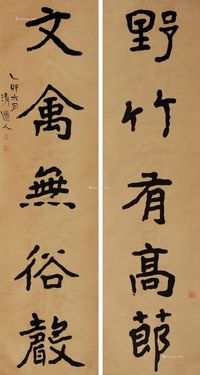 野竹有高節
文禽無俗聲
乙卯六月
清道人